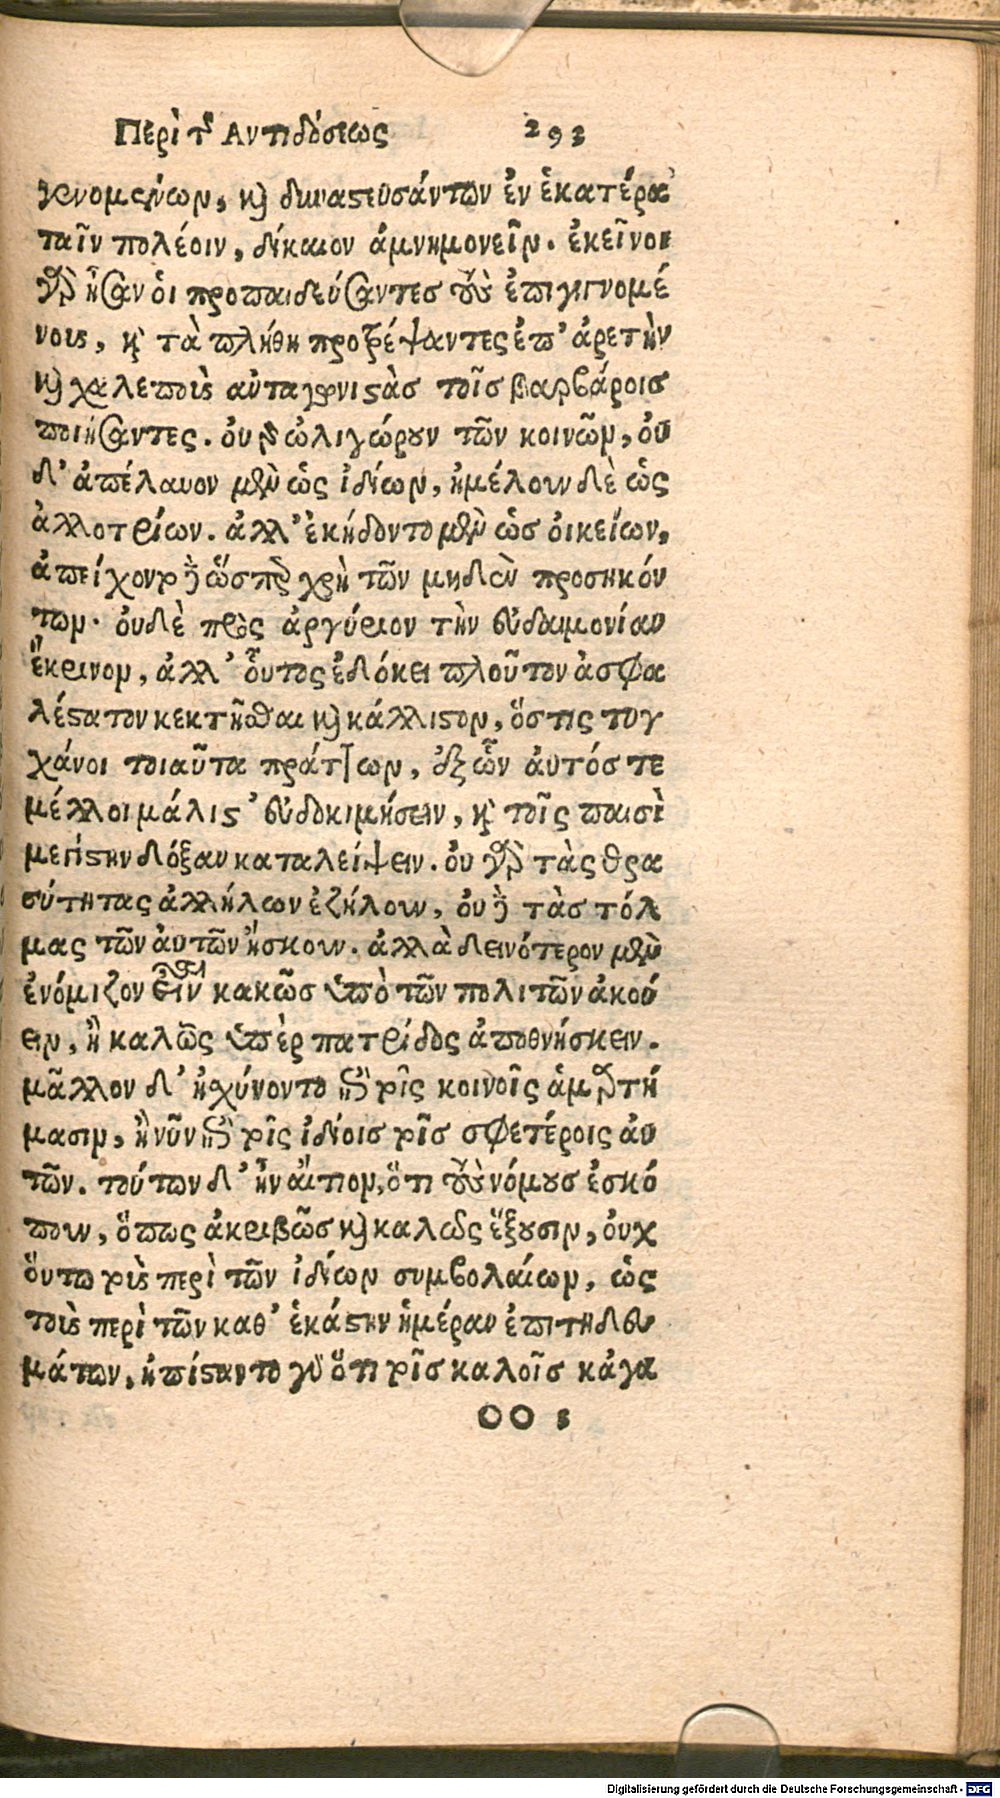 Περὶ τῆς Αντιδόσεως 293
γενομένων, καὶ δυναστευσάντων ἐν ἑκατέρα
ταῖν πολέοιν, δίκαιον ἀμνημονεῖν. ἐκεῖνοι
γὰρ ἦσαν ὁι προπαιδεύσαντεσ τοὺς ἐπιγιγνομέ
νους, καὶ τὰ πλήθη προτρέψαντες ἐπ' ἀρετὴν
καὶ χαλεποὺς ἀυταγωνιστὰσ τοῖσ βαρβάροισ
ποιήσαντες. ὀυ γὰρ ὠλιγώρουν τῶν κοινῶν, ὀυ
δ' ἀπέλαυον μὲν ὡς ἰδίων, ἠμέλουν δὲ ὡς
ἀλλοτρίων. ἀλλ' ἐκήδοντο μὲν ὡσ ὀικείων,
ἀπείχοντο δὲ ὥσπερ χρὴ τῶν μηδὲν προσηκόν
των. ὀυδὲ πρὸς ἀργύριον τὴν ἐυδαιμονίαν
ἔκρινον, ἀλλ' ὗτος ἐδόκει πλοῦτον ἀσφα
λέστατον κεκτῆσθαι καὶ κάλλιστον, ὅστις τυγ
χάνοι τοιαῦτα πράττων, ἐξ ὧν ἀυτός τε
μέλλοι μάλιστ' ἐυδοκιμήσειν, καὶ τοῖς παισὶ
μεγίστην δόξαν καταλείψειν. ὀυ γὰρ τὰς θρα
σύτητας ἀλλήλων ἐζήλουν, ὀυδὲ τὰσ τόλ
μας τῶν ἀυτῶν ἤσκουν. ἀλλὰ δεινότερον μὲν
ἐνόμιζον εἶναι κακῶσ ὑπὸ τῶν πολιτῶν ἀκού
ειν, ἢ καλῶς ὑπὲρ πατρίδος ἀποθνήσκειν.
μᾶλλον δ' ᾐσχύνοντο ἐπὶ τοῖς κοινοῖς ἁμαρτή
μασιν, ἢ νῦν ἐπὶ τοῖς ἰδίοισ τοῖσ σφετέροις ἀυ
τῶν. τούτων δ' ἦν ἄιτιον, ὅτι τοὺς νόμουσ ἐσκό
πουν, ὅπως ἀκριβῶσ καὶ καλῶς ἕξουσιν, ὀυχ
ὅυτω τοὺς περὶ τῶν ἰδίων συμβολαίων, ὡς
τοὺς περὶ τῶν καθ' ἑκάστην ἡμέραν ἐπιτηδευ
μάτων, ἠπίσταντο γὰρ ὅτι τοῖσ καλοῖσ κἀγα
OO 3
Digitalisierung gefördert durch die Deutsche Forschungsgemeinschaft - DFG